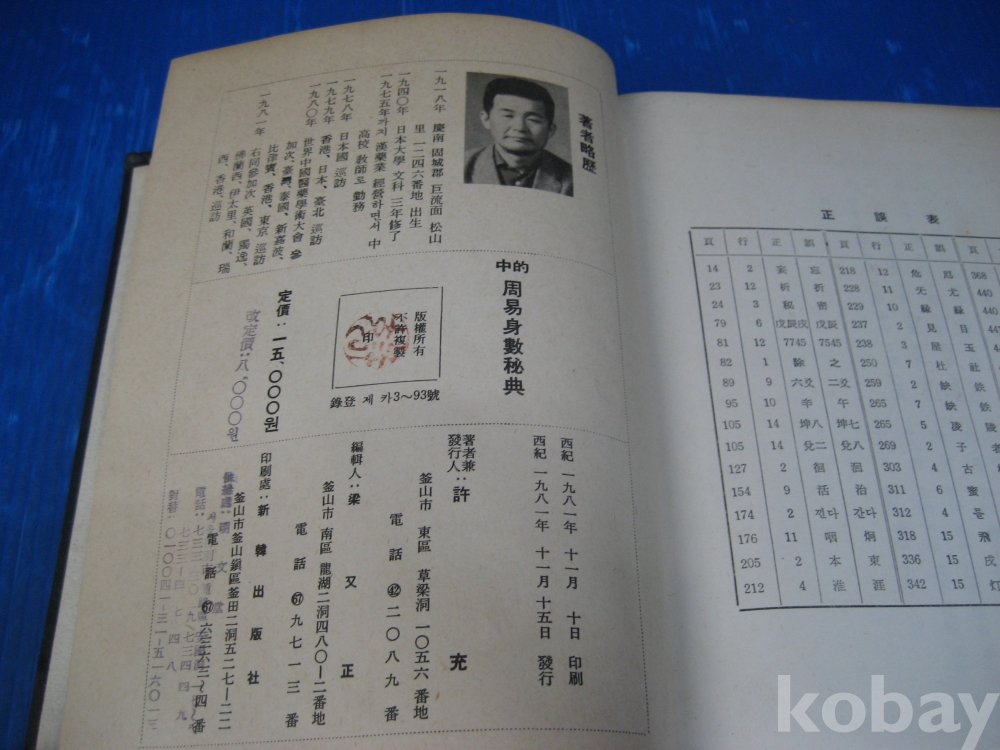 著者略歷
一九一八年 慶南 固城郡 巨流面 松山
里 一二四六番地 出生
一九四〇年 日本大學 文科 三年修了
一九七五年까지 漢藥業 經營하면서 中
高校 敎師로 勤務
一九七八年 日本國 巡訪
一九七九年 香港、日本、臺北 巡訪
一九八〇年 世界中國醫藥學術大會 參
加次、臺灣、泰國、新嘉波、
比律賓、香港、東京 巡訪
一九八一年 右同參加次 英國、獨逸、
佛蘭西、伊太里、和蘭、瑞
西、香港、巡訪
中的 周易身數秘典
版權所有
不許複製
印
錄登 제 카3~93號
定價：一五、〇〇〇원
改定價：八、〇〇〇원
西紀 一九八一年 十一月 十日 印刷
西紀 一九八一年 十一月 十五日 發行
著者兼
發行人：許 充
釜山市 東區 草梁洞 一〇五六番地
電話 ㊷ 二〇八九番
編輯人：梁 又 正
釜山市 南區 龍湖二洞四八〇ー二番地
電話 67 九七一三番
印刷處：新韓出版社
釜山市釜山鎭區釜田二洞五二七ー二二
電話 67 六三六三~四番
正誤表
頁 行 正 誤 頁 行 正 誤 頁
14 2 妄 忘 218 12 危 厄 368
23 12 析 折 228 11 无 尤 440
24 3 秘 密 229 10 綠 錄 440
79 6 戊辰戌 戊辰 237 2 見 目
81 12 7745 7545 238 3 屋 玉
82 1 除 之 250 7 杜 社
89 9 六爻 二爻 259 2 缺 鉄
95 10 辛 午 265 7 缺 鉄
105 14 坤八 坤七 265 5 凌 陵
105 14 兌二 兌八 269 2 子 者
127 2 徊 廻 303 4 古
154 9 活 治 311 6 蜜
174 2 건다 간다 312 4 들
176 11 咽 炯 318 15 飛
205 2 本 東 336 15 戌
212 4 淮 涯 342 15 灯
kobay